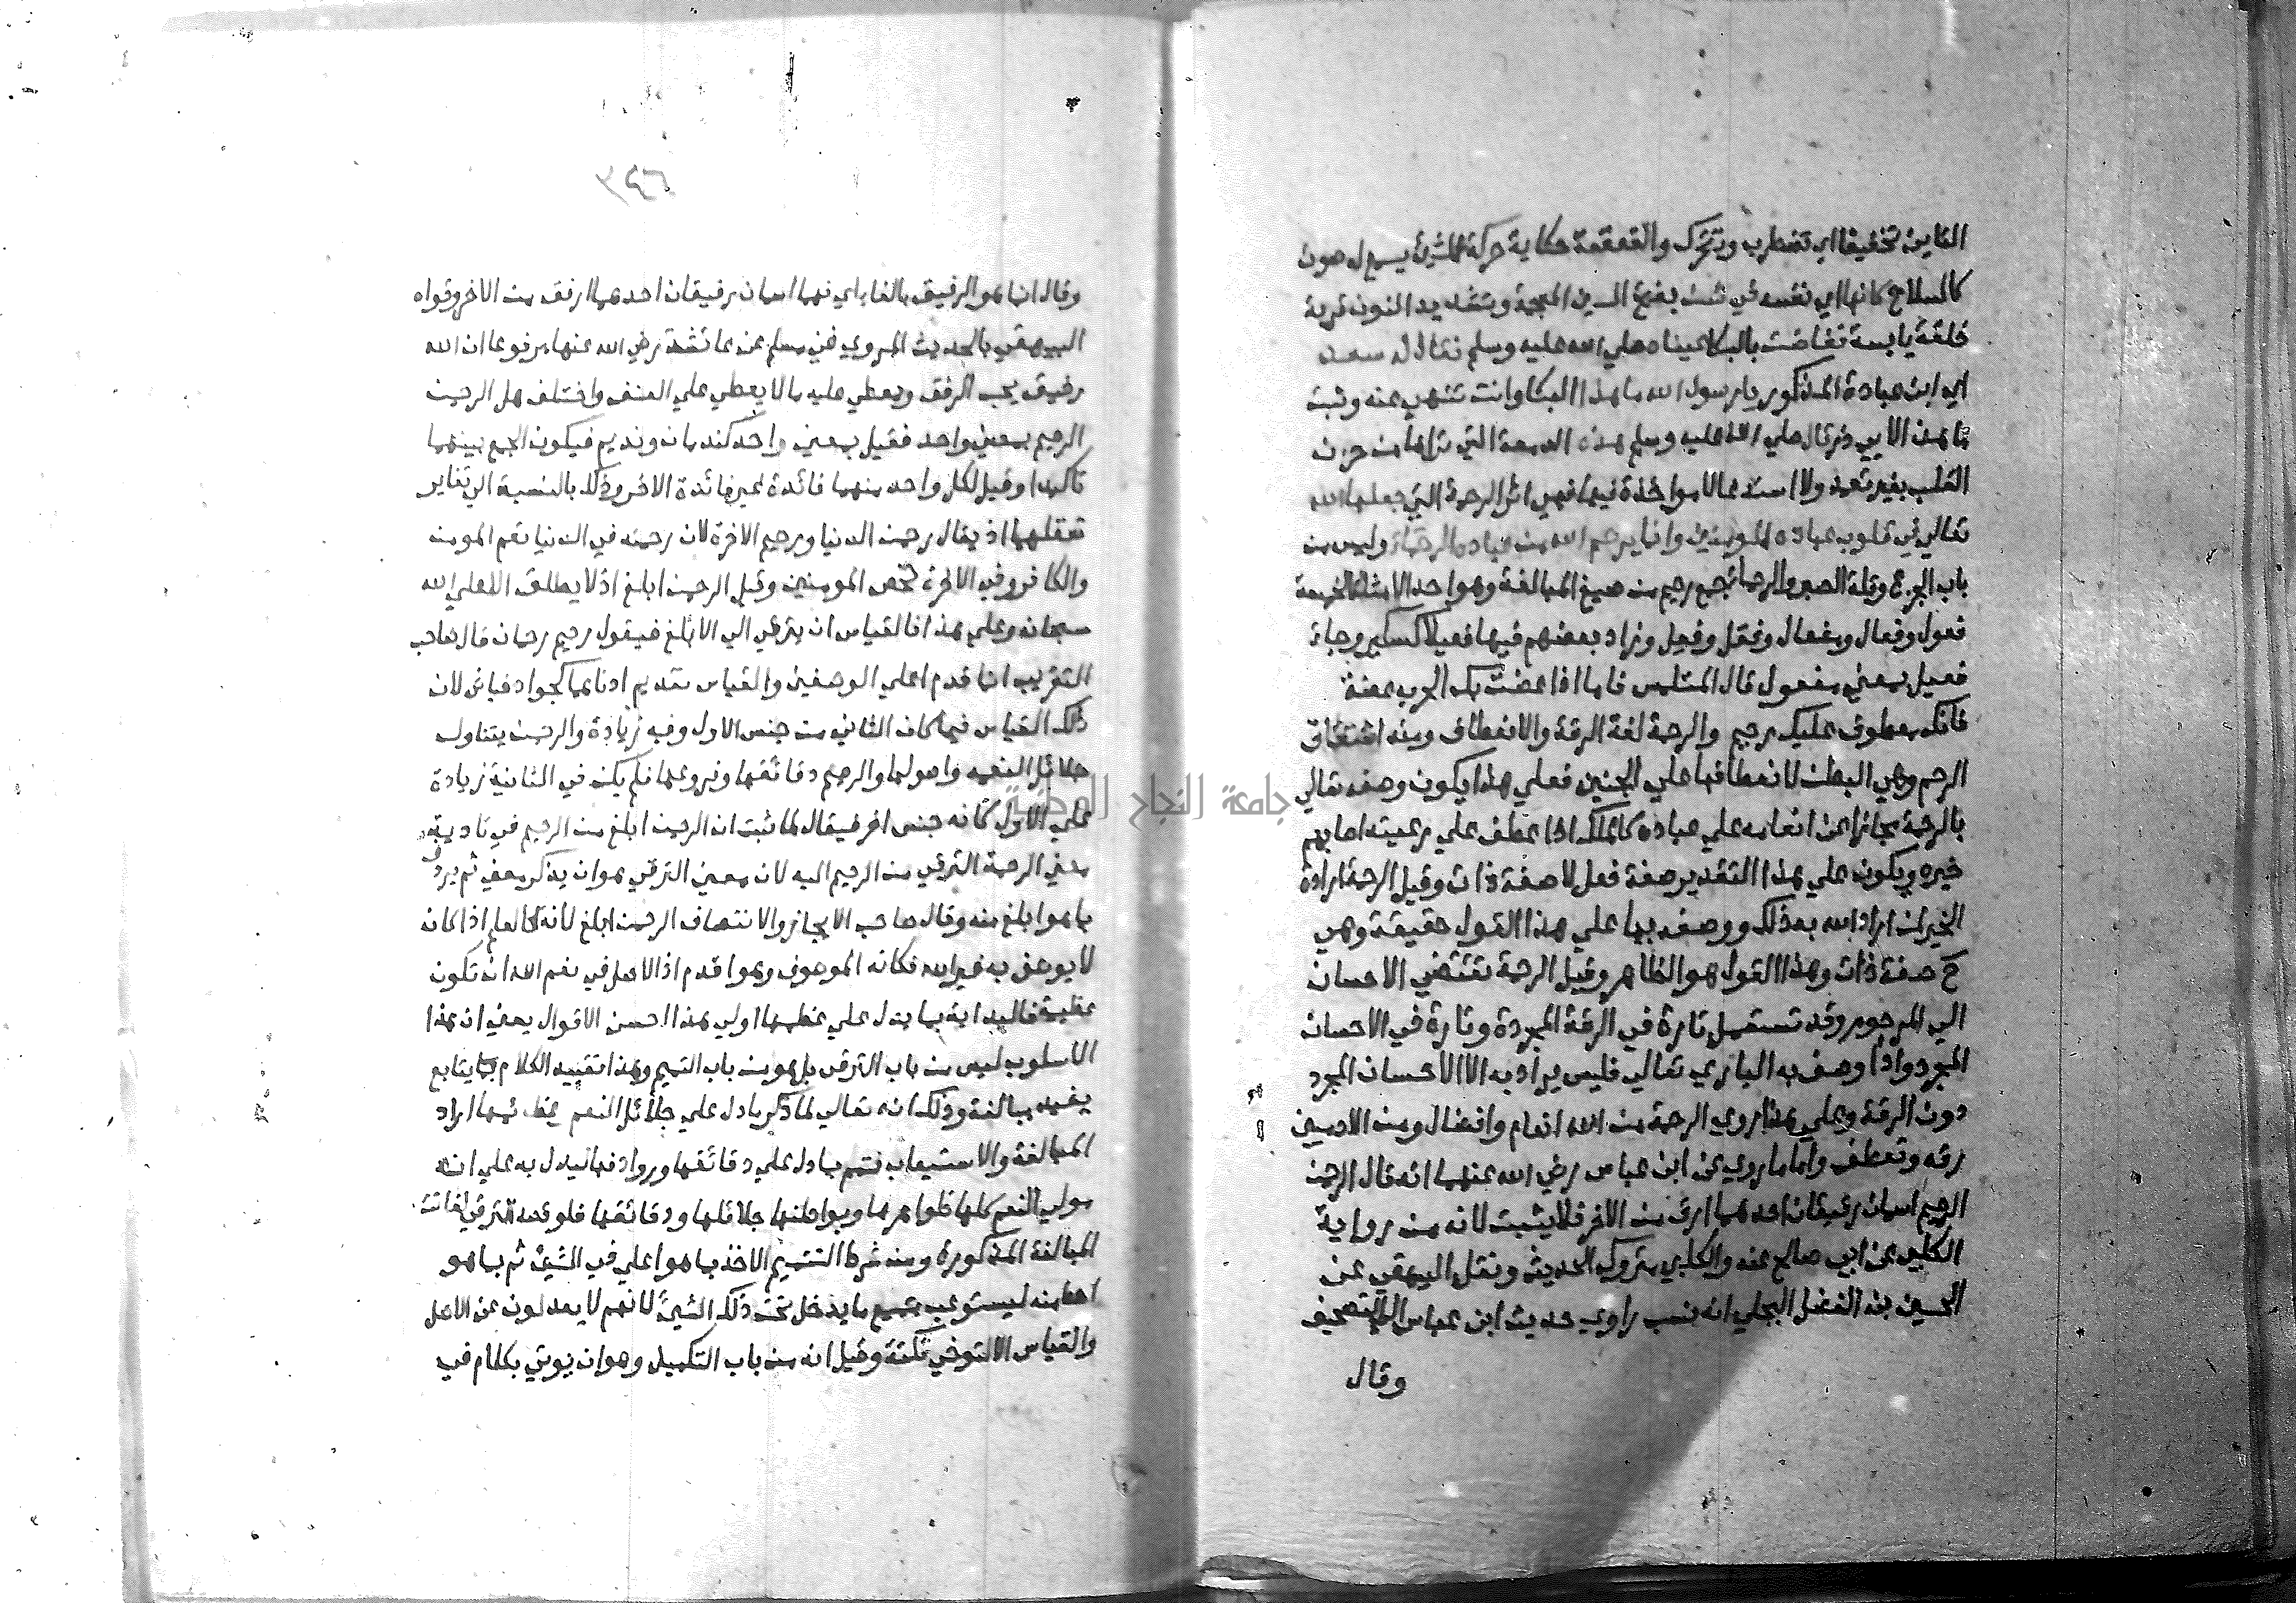 التاين تخفيفا اي تضطرب وتتحرك والقعقعة حكاية حركة الشيئ يسمع له صوت
كالسلاح كانها اي نفسه في شن بفتح الشين المعجمة وتشديد النون قربة
خلقة يابسة ففاضت بالبكا عيناه صلي الله عليه وسلم فقال له سعد
اي ابن عبادة المذكور يا رسول الله ما هذا البكا وانت تنهي عنه وثبت
ما هذا لابي ذر قال صلي الله عليه وسلم هذه الدمعة التي تراها من حزن
القلب بغير تعمد ولا استدعا لا مواخذة فيها فهي اثر الرحمة التي جعلها الله
تعالي في قلوب عباده المومنين وانما يرحم الله من عباده الرحماء وليس من
باب الجزع وقلة الصبر والرحما جمع رحيم من صيغ المبالغة وهو احد الامثلة الخمسة
فعول وفعال ومفعال وفعل وفعيل وزاد بعضهم فيها فعيلا كسكير وجاء
فعيل بمعني مفعول قال المتلمس فاما اذا عضت بك الحرب عضة
فانك معطوف عليك رحيم والرحمة لغة الرقة والانعطاف ومنه اشتقاق
الرحم وهي البطن لانعطافها علي الجنين فعلي هذا يكون وصفه تعالي
بالرحمة مجازا عن انعامه علي عباده كالملك اذا عطف علي رعيته اصابهم
خيره ويكون علي هذا التقدير صفة فعل لا صفة ذات وقيل الرحمة ارادة
الخير لمن اراد الله به ذلك ووصفه بها علي هذا القول حقيقة وهي
ح صفة ذات وهذا القول هو الظاهر وقيل الرحمة تقتضي الاحسان
الي المرحوم وقد تستعمل تارة في الرقة المجردة وتارة في الاحسان
المجرد واذا وصف به الباري تعالي فليس يراد به الا الاحسان المجرد
دون الرقة وعلي هذا روي الرحمة من الله انعام وافضال ومن الادميين
رقة وتعطف واما ما روي عن ابن عباس رضي الله عنهما انه قال الرحمن
الرحيم اسمان رقيقان احدهما ارق من الاخر فلا يثبت لانه من رواية
الكلبي عن ابي صالح عنه والكلبي متروك الحديث ونقل البيهقي عن
الحسين بن الفضل البجلي انه نسب راوي حديث ابن عباس الي التصحيف
وقال
٣٤٦
وقال انما هو الرفيق بالفاء اي فهما اسمان رفيقان احدهما ارفق من الاخر وقواه
البيهقي بالحديث المروي في مسلم عن عائشة رضي الله عنها مرفوعا ان الله
رفيق يحب الرفق ويعطي عليه مالا يعطي علي العنف واختلف هل الرحمن
الرحيم بمعني واحد فقيل بمعني واحد كندمان ونديم فيكون الجمع بينهما
تاكيدا وقيل لكل واحد منهما فائدة غير فائدة الاخر وذلك بالنسبة الي تغاير
تعقلهما اذ يقال رحمن الدنيا ورحيم الاخرة لان رحمته في الدنيا تعم المومن
والكافر وفي الاخرة تخص المومنين وقيل الرحمن ابلغ اذ لا يطلق الا علي الله
سبحانه وعلي هذا فالقياس ان يترقي الي الابلغ فيقول رحيم رحمان قال صاحب
التقريب انما قدم اعلي الوصفين والقياس تقديم ادناهما كجواد فياض لان
ذلك القياس فيما كان الثاني من جنس الاول وفيه زيادة والرحمن يتناول
جلائل النعم واصولها والرحيم دقائقها وفروعها فلم يكن في الثانية زيادة
علي الاول كانه جنس اخر فيقال لما ثبت ان الرحمن ابلغ من الرحيم في تادية
معني الرحمة الترقي من الرحيم اليه لان معني الترقي هو ان يذكر معني ثم يردف
بما هو ابلغ منه وقال صاحب الايجاز والانتصاف الرحمن ابلغ لانه كالعلم اذا كان
لا يوصف به غير الله فكانه الموصوف وهو اقدم اذ الاصل في نعم الله ان تكون
عظيمة فالبداية بما يدل علي عظمها اولي هذا احسن الاقوال يعني ان هذا
الاسلوب ليس من باب الترقي بل هو من باب التتميم وهذا تقييد الكلام بما يتابع
يفيد مبالغة وذلك انه تعالي لما ذكر ما دل علي جلائل النعم عظائمها اراد
المبالغة والاستيعاب فتمم بما دل علي دقائقها وروادفها ليدل به علي انه
مولي النعم كلها ظواهرها وبواطنها جلائلها ودقائقها فلو قصد الترقي لفاتت
المبالغة المذكورة ومن شرط التتميم الاخذ بما هو اعلي في الشيئ ثم بما هو
احط منه ليستوعب جميع ما يدخل تحت ذلك الشيئ لانهم لا يعدلون عن الاصل
والقياس الا لتوخي نكتة وقيل انه من باب التكميل وهو ان يوتي بكلام في
جامعة النجاح الوطنية